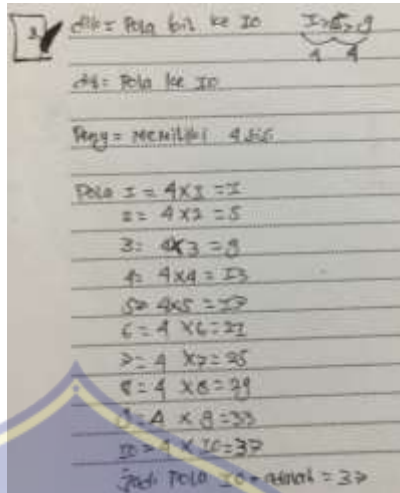 3 dik = Pola bil ke 10 1, 5, 9
4 4
dit = Pola ke 10
Peny = Memiliki 4
Pola 1 = 4 x 1 = 1
2 = 4 x 2 = 5
3 = 4 x 3 = 9
4 = 4 x 4 = 13
5 = 4 x 5 = 17
6 = 4 x 6 = 21
7 = 4 x 7 = 25
8 = 4 x 8 = 29
9 = 4 x 9 = 33
10 = 4 x 10 = 37
Jadi Pola 10 adalah = 37